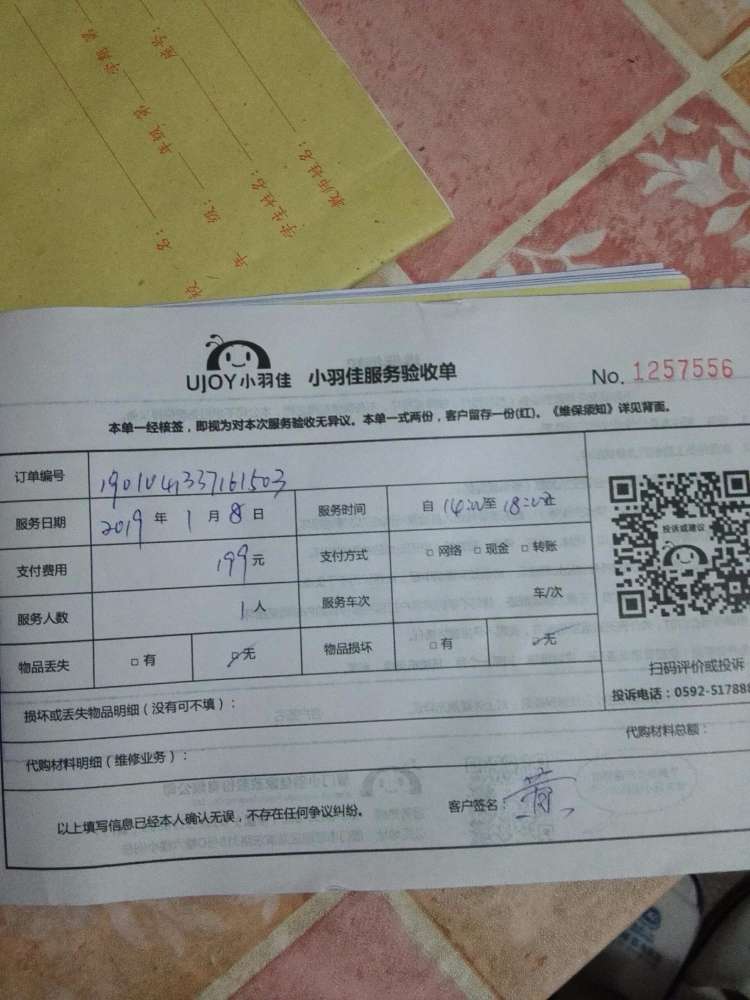 教师姓名：
学生姓名：
年 级：
年级 第 学期 第
座号：
校 名：
UJOY小羽佳 小羽佳服务验收单
No. 1257556
本单一经核签，即视为对本次服务验收无异议。本单一式两份，客户留存一份(红)、《维保须知》详见背面。
订单编号 1901041337161503
服务日期 2019 年 1 月 8 日 服务时间 自 14:00至 18:00止
支付费用 199元 支付方式 □ 网络 □ 现金 □ 转账
服务人数 1人 服务车次 车/次
物品丢失 □ 有 ☑无 物品损坏 □ 有 ☑无
投诉或建议
扫码评价或投诉
投诉电话：0592-517888
损坏或丢失物品明细（没有可不填）：
代购材料明细（维修业务）： 代购材料总额：
以上填写信息已经本人确认无误，不存在任何争议纠纷。 客户签名：